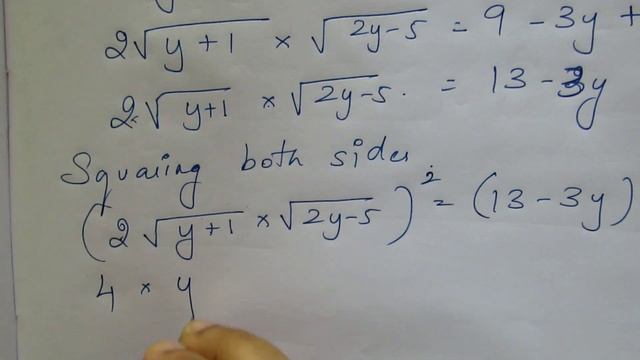 2√(y+1) × √(2y-5) = 9 - 3y +
2 × √(y+1) × √(2y-5) = 13 - 3y
Squaring both sides
(2√(y+1) × √(2y-5))² = (13 - 3y)
4 × y